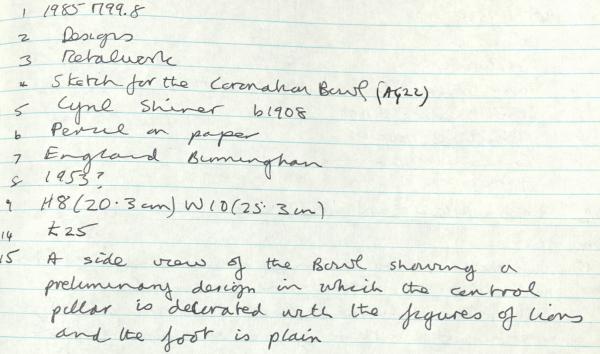 1 1985 M799.8
2 Designs
3 Metalwork
4 Sketch for the Coronation Bowl (Ag22)
5 Cyril Shiner b1908
6 Pencil on paper
7 England Birmingham
8 1953?
9 H8 (20.3 cm) W10 (25.3 cm)
14 £25
15 A side view of the Bowl showing a
preliminary design in which the central
pillar is decorated with the figures of lions
and the foot is plain